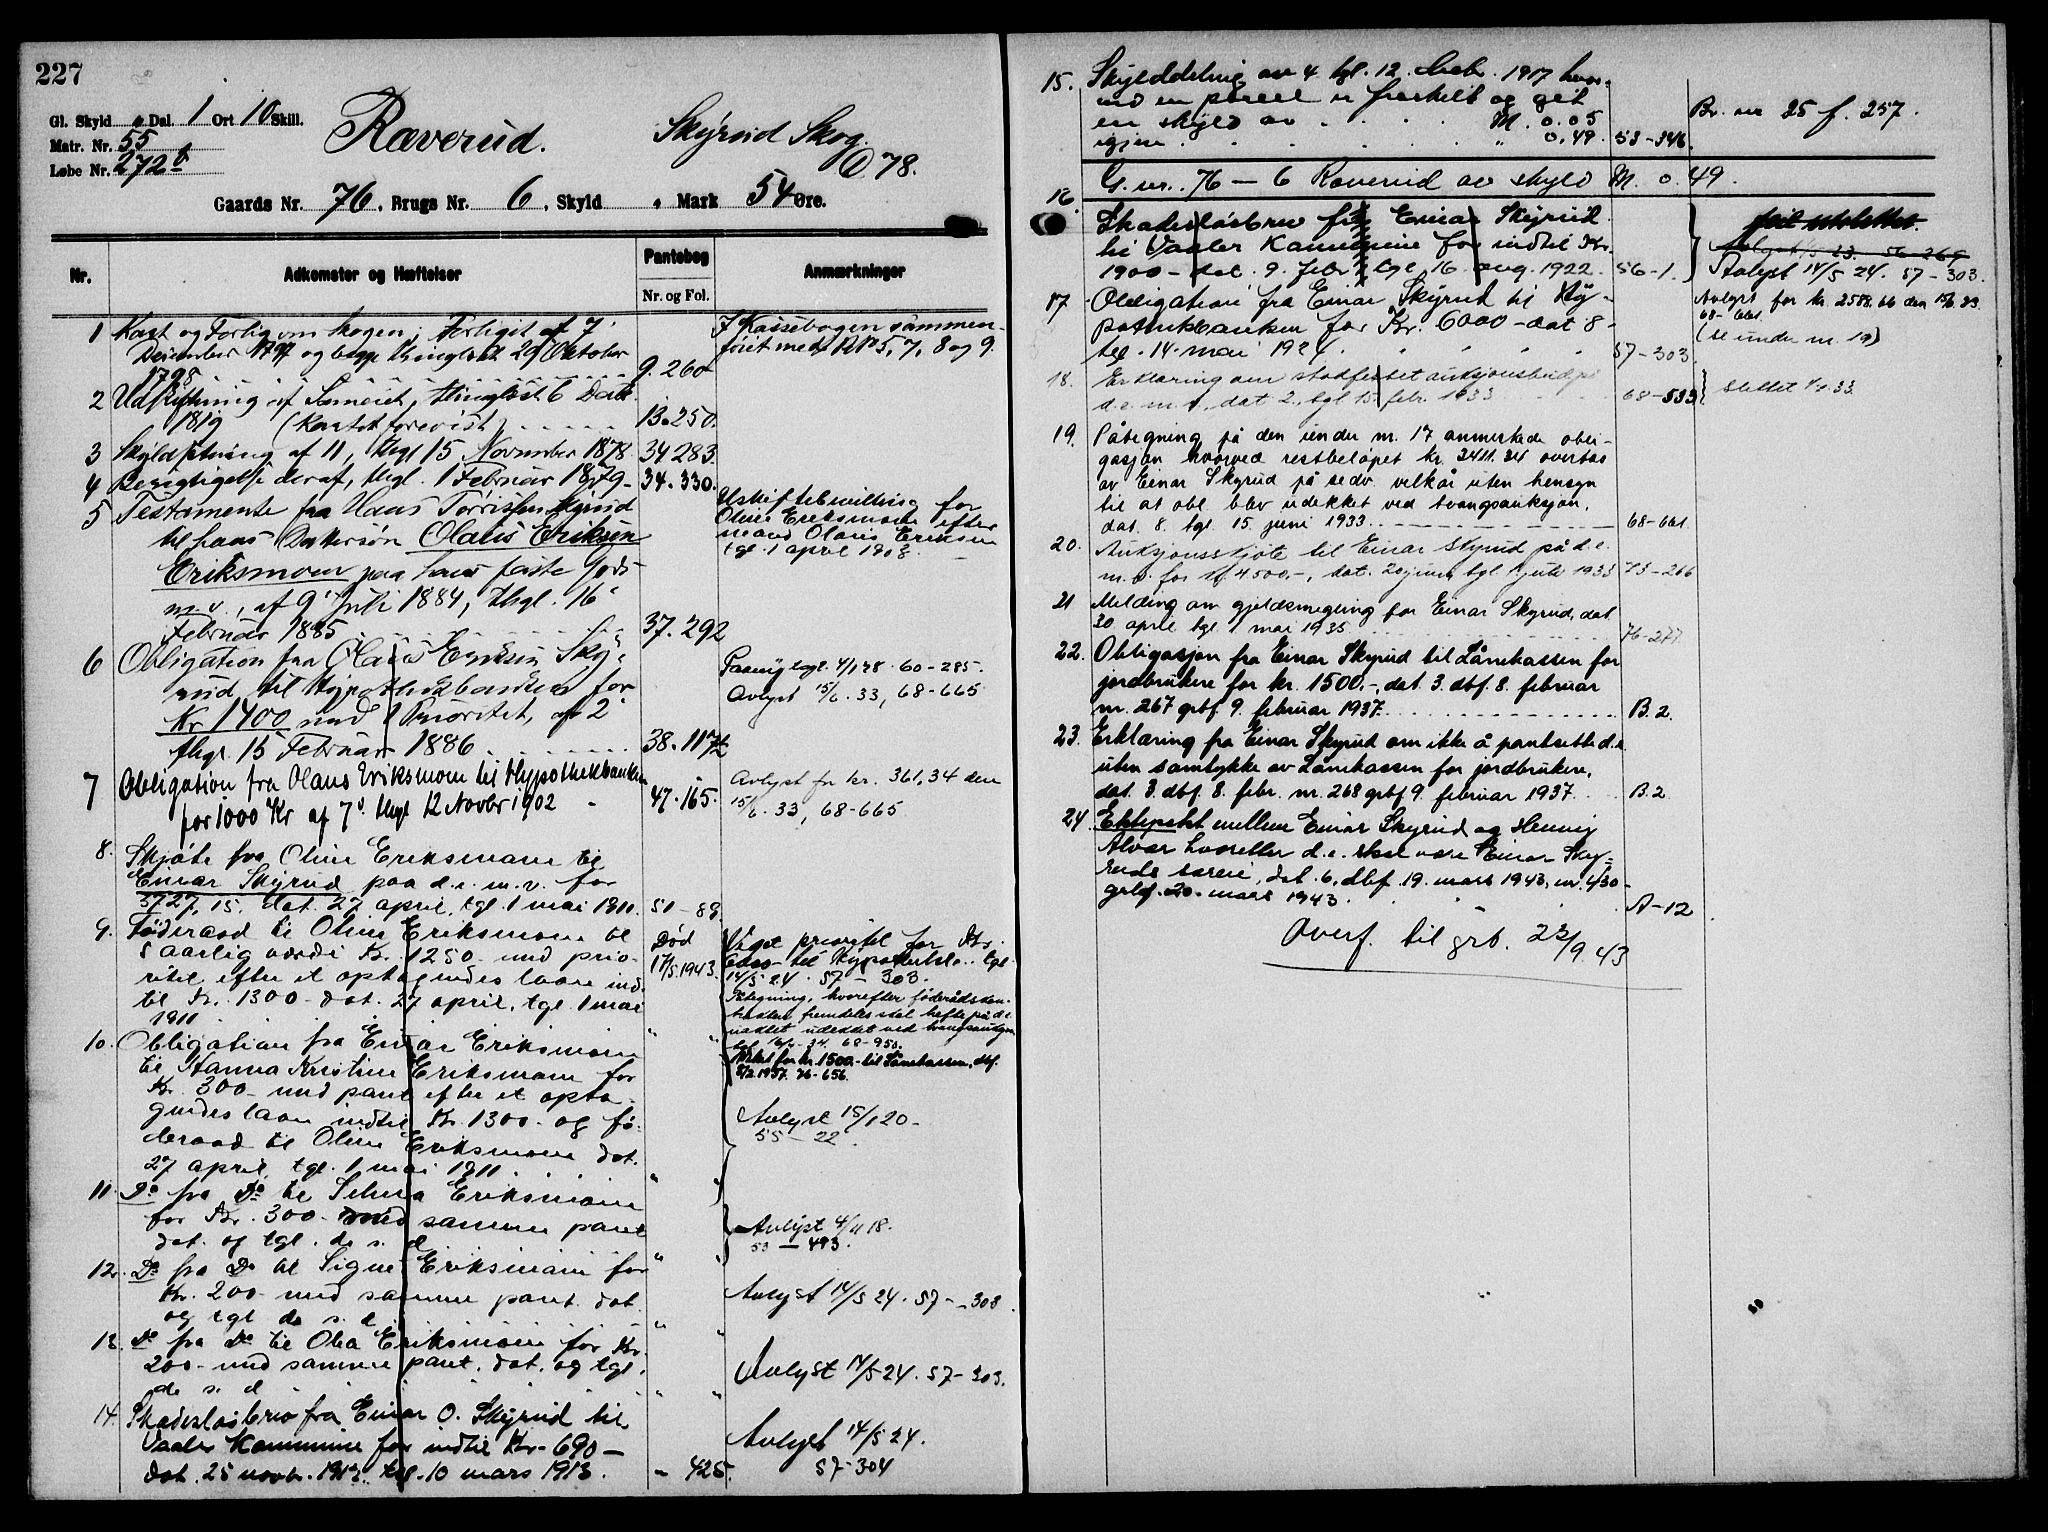 227
Gl. Skyld „ Dal. 1 Ort 10 Skill.
Matr. Nr. 55
Løbe Nr. 272 b
Ræverud.
Skyrud Skog
78.
Gaards Nr. 76, Brugs Nr. 6, Skyld „ Mark 54 Øre.
Nr.
Adkomster og Hæftelser
Pantebog
Nr. og Fol.
Anmærkninger
1 Kart og Forlig om Skogen, Forligit af 7'
December 1797 og begge thinglæst 29 Oktober
1798 9.260
I Kassebogen sammen-
føiet med No 5, 7, 8 og 9.
2 Udskiftning af Sameiet, thinglæst 6
1819 (Kartet forevist) 13.250.
3 Skyldsetning af 11, thgl 15 November 1878 34 283
4 Berigtigelse deraf, thgl. 1 Februar 1879 34.330.
5 Testamente fra Hans Torrissen Skyrud
til hans Dattersøn Olaus Eriksen
Eriksmoen paa hans faste Gods
m.v., af 9' Juli 1884, thgl. 16'
Februar 1885 37.292
Uskiftebevilling for
Oline Eriksmoen efter
mand Olaus Eriksen
tgl. 1 april 1903.
6 Obligation fra Olaus Eriksen Sky-
rud til Hypothekbanken for
Kr 1400 med 1 Prioritet, af 2'
thgl. 15 Februar 1886 38.117 b
Avlyst 15/6.33, 68-665
7 Obligation fra Olaus Eriksmoen til Hypothekbanken
for 1000 Kr af 7' thgl 12 Novbr 1902 47.165.
Avlyst for kr. 361,34 den
15/6.33, 68-665
8. Skjøte fra Oline Eriksmoen til
Einar Skyrud paa d.e. m.v. for
3727,15. dat. 27 april, tgl. 1 mai 1911. 51-89.
9. Føderaad til Oline Eriksmoen til
5 aarlig værdi Kr. 1250 med prio-
ritet efter et optagendes laan ind-
til Kr. 1300 dat. 27 april, tgl. 1 mai
1911
Død
17/5 1943.
Veget prioritet for Kr.
6000 til Hypotekbk. tgl.
14/5 24. 57-303.
Påtegning, hvorefter føderådskon-
trakten fremdeles skal hefte på d.e.
uaktet udekket ved tvangsauksjon
68-950.
Veket for kr. 1500.- til Lånekassen, dbf.
8/2 1937. 76-656.
10. Obligation fra Einar Eriksmoen
til Hanna Kristine Eriksmoen for
Kr. 300 med pant efter et opta-
gendes laan indtil Kr. 1300 og fø-
deraad til Oline Eriksmoen dat.
27 april, tgl. 1 mai 1911 " "
Avlyst 15/1 20
55-22.
11. Do fra Do til Selma Eriksmoen
for Kr. 300 med samme pant
dat. og tgl. de s. d " "
Avlyst 4/11 18.
53-493.
12. Do fra Do til Signe Eriksmoen for
Kr. 200 med samme pant dat.
og tgl de s. d " "
Avlyst 14/5 24. 57-303.
13. Do fra Do til Olea Eriksmoen for Kr.
200 med samme pant, dat. og tgl.
de s. d " "
Avlyst 14/5 24. 57-303.
14. Skadesløsbrev fra Einar O. Skyrud til
Vaaler Kommune for indtil Kr. 690-
dat. 25 novbr. 1912, tgl. 10 mars 1913. - 425.
Avlyst 14/5 24.
57-304
15. Skylddeling av 4 tgl. 12. 1917 hvor-
ved en parcel er fraskilt og git
en skyld av M. 0.05
igjen " 0,49. 53-346.
Br. nr 25 f. 257.
G. nr. 76 - 6 Raverud av skyld M. 0.49.
16. Skadesløsbrev fra Einar Skyrud
til Vaaler Kommune for indtil Kr.
1900 - dat. 9. febr. tgl. 16 aug. 1922. 56-1.
feil utslettet
Avlyst 23. 56-269
Avlyst 14/5 24. 57-303.
17 Obligation fra Einar Skyrud til Hy-
potekbanken for Kr. 6000 - dat 8-
tgl. 14. mai 1924. 57-303
Avlyst for kr. 2588.66 den 15/6 33
68-661
(se under nr. 19)
18. Erklæring om stadfestet auksjonsbud på
d.e. m.v., dat 2., tgl 15 febr. 1933 68-533
Slettet 33.
19. Påtegning på den under nr. 17 anmerkede obli-
gasjon hvorved restbeløpet kr. 3411.34 overtas
av Einar Skyrud på sedv. vilkår uten hensyn
til at obl. blev udekket ved tvangsauksjon,
dat. 8. tgl. 15. juni 1933 68-661.
20. Auksjonsskjøte til Einar Skyrud på d.e.
m.v. for kr 4500,-, dat. 20 juni, tgl. juli 1933 73-266
21 Melding om gjeldsmegling for Einar Skyrud, dat
30 april tgl. 1 mai 1935 76-277
22. Obligasjon fra Einar Skyrud til Lånekassen for
jordbrukere for kr. 1500.-, dat. 3. dbf. 8. februar
nr. 267 grbf 9. februar 1937. B.2.
23. Erklæring fra Einar Skyrud om ikke å pantsette d.e.
uten samtykke av Lånekassen for jordbrukere,
dat. 3. dbf. 8. febr. nr. 268 grbf 9. februar 1937. B.2
24. Ektepakt mellem Einar Skyrud og Henny
Alvær hvoretter d.e. skal være Einar Sky-
ruds særeie, dat. 6. dbf. 19. mars 1943, nr. 430-
grbf. 20. mars 1943. A-12
Overf. til grb. 23/9 43